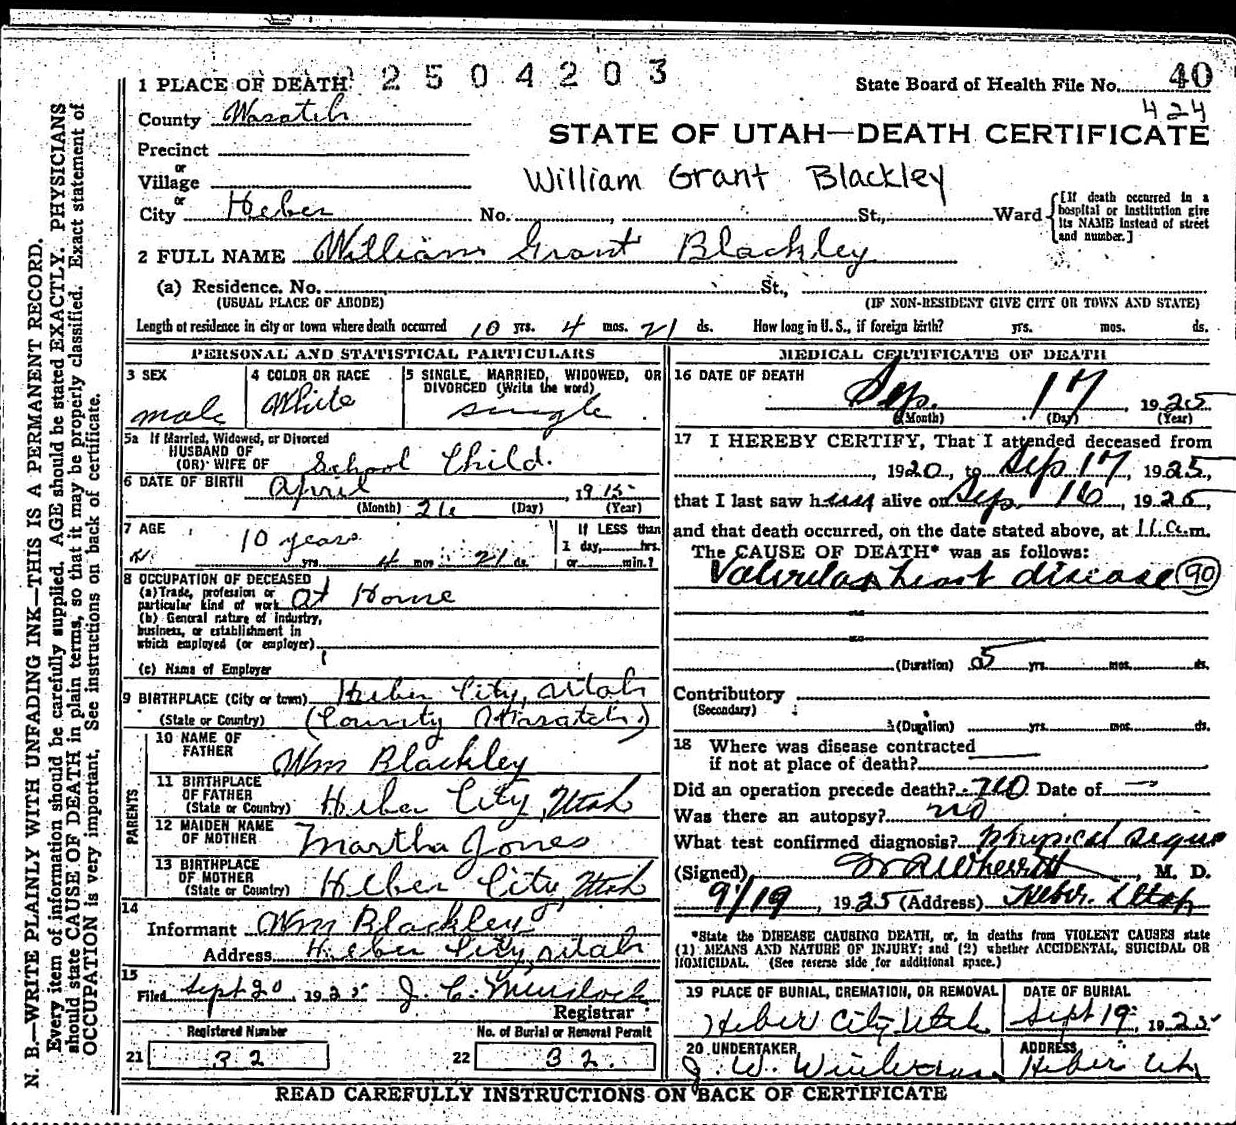 2504203
State Board of Health File No. 40
424
1 PLACE OF DEATH
County Wasatch
STATE OF UTAH—DEATH CERTIFICATE
Precinct
or
Village
William Grant Blackley
or
City Heber No. , St., Ward
[If death occurred in a hospital or institution give its NAME instead of street and number.]
2 FULL NAME William Grant Blackley
(a) Residence. No. St.,
(USUAL PLACE OF ABODE) (IF NON-RESIDENT GIVE CITY OR TOWN AND STATE)
Length of residence in city or town where death occurred 10 yrs. 4 mos. 21 ds. How long in U. S., if foreign birth? yrs. mos. ds.
PERSONAL AND STATISTICAL PARTICULARS
3 SEX
male
4 COLOR OR RACE
White
5 SINGLE, MARRIED, WIDOWED, OR DIVORCED (Write the word)
single
5a If Married, Widowed, or Divorced
HUSBAND OF
(OR) WIFE OF School Child.
6 DATE OF BIRTH April 26, 1915
(Month) (Day) (Year)
7 AGE 10 years
yrs. 4 mos 21 ds.
If LESS than
1 day, hrs.
or min.?
8 OCCUPATION OF DECEASED
(a) Trade, profession or
particular kind of work At Home
(b) General nature of industry,
business, or establishment in
which employed (or employer)
(c) Name of Employer
9 BIRTHPLACE (City or town) Heber City, Utah
(State or Country) (County Wasatch.)
PARENTS
10 NAME OF
FATHER Wm Blackley
11 BIRTHPLACE
OF FATHER
(State or Country) Heber City, Utah
12 MAIDEN NAME
OF MOTHER Martha Jones
13 BIRTHPLACE
OF MOTHER
(State or Country) Heber City, Utah
14
Informant Wm Blackley
Address Heber City, Utah
15
Filed Sept 20, 1925 J. C. Murdock
Registrar
Registered Number
21 32
No. of Burial or Removal Permit
22 32.
MEDICAL CERTIFICATE OF DEATH
16 DATE OF DEATH
Sep. 17, 1925
(Month) (Day) (Year)
17 I HEREBY CERTIFY, That I attended deceased from
, 1920, to Sep 17, 1925,
that I last saw him alive on Sep. 16, 1925,
and that death occurred, on the date stated above, at 11 a.m.
The CAUSE OF DEATH* was as follows:
Valvular heart disease (90)
(Duration) 5 yrs. mos. ds.
Contributory
(Secondary)
(Duration) yrs. mos. ds.
18 Where was disease contracted
if not at place of death?
Did an operation precede death? no Date of
Was there an autopsy? no
What test confirmed diagnosis? Physical signs
(Signed) W R Wherritt, M. D.
9/19, 1925 (Address) Heber. Utah
*State the DISEASE CAUSING DEATH, or, in deaths from VIOLENT CAUSES state
(1) MEANS AND NATURE OF INJURY; and (2) whether ACCIDENTAL, SUICIDAL OR
HOMICIDAL. (See reverse side for additional space.)
19 PLACE OF BURIAL, CREMATION, OR REMOVAL
Heber City Utah
DATE OF BURIAL
Sept 19 1925
20 UNDERTAKER
J. W. Winterrose
ADDRESS
Heber Utah
READ CAREFULLY INSTRUCTIONS ON BACK OF CERTIFICATE
N. B.—WRITE PLAINLY WITH UNFADING INK—THIS IS A PERMANENT RECORD.
Every item of information should be carefully supplied. AGE should be stated EXACTLY. PHYSICIANS
should state CAUSE OF DEATH in plain terms, so that it may be properly classified. Exact statement of
OCCUPATION is very important. See instructions on back of certificate.